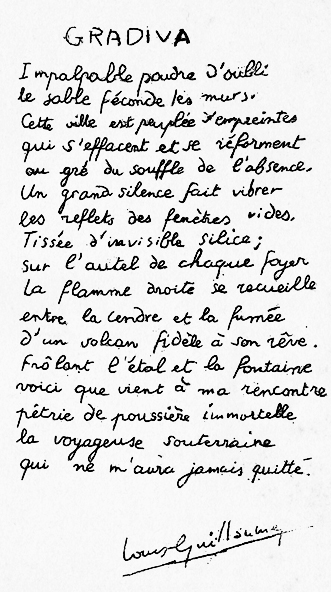 GRADIVA
Impalpable poudre d'oubli
le sable féconde les murs.
Cette ville est peuplée d'empreintes
qui s'effacent et se réforment
au gré du souffle de l'absence.
Un grand silence fait vibrer
les reflets des fenêtres vides.
Tissée d'invisible silice;
sur l'autel de chaque foyer
la flamme droite se recueille
entre la cendre et la fumée
d'un volcan fidèle à son rêve.
Frôlant l'étal et la fontaine
voici que vient à ma rencontre
pétrie de poussière immortelle
la voyageuse souterraine
qui ne m'aura jamais quitté.
Louis Guillaume